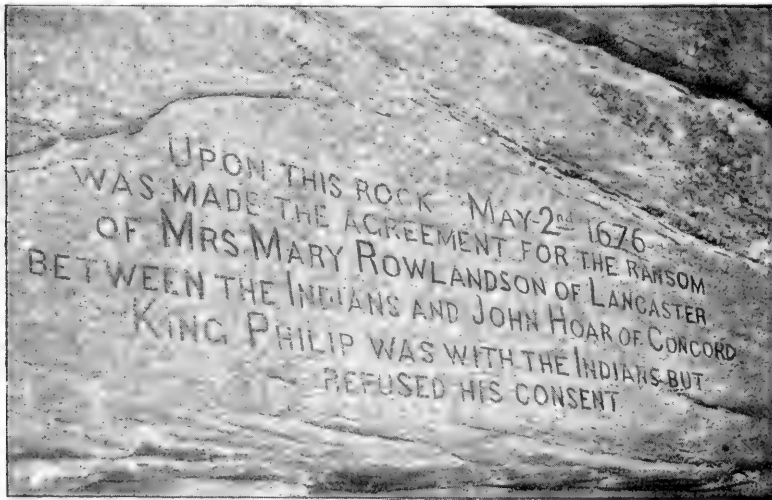 UPON THIS ROCK MAY 2nd 1676
WAS MADE THE AGREEMENT FOR THE RANSOM
OF MRS MARY ROWLANDSON OF LANCASTER
BETWEEN THE INDIANS AND JOHN HOAR OF CONCORD
KING PHILIP WAS WITH THE INDIANS BUT
REFUSED HIS CONSENT